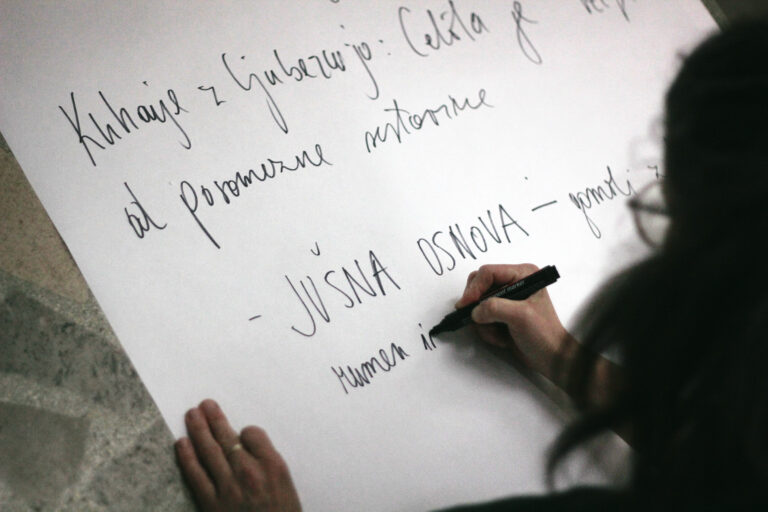 Kuhanje z ljubeznijo: Celota je
od posamezne sestavine
- JUŠNA OSNOVA - gomolj z
rumen in